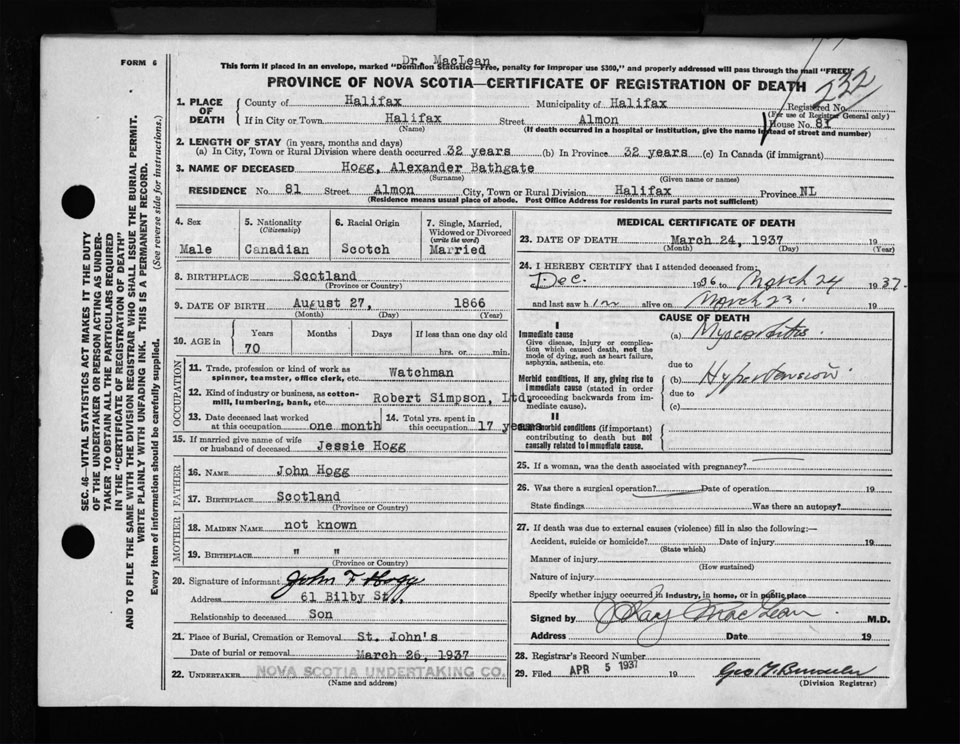 FORM 6
Dr. MacLean
This form if placed in an envelope, marked "Dominion Statistics—Free, penalty for improper use $300," and properly addressed will pass through the mail "FREE"
PROVINCE OF NOVA SCOTIA—CERTIFICATE OF REGISTRATION OF DEATH
232
Registered No.
(For use of Registrar General only)
1. PLACE OF DEATH
County of Halifax Municipality of Halifax
If in City or Town Halifax Street Almon House No. 81
(Name) (If death occurred in a hospital or institution, give the name instead of street and number)
2. LENGTH OF STAY (in years, months and days)
(a) In City, Town or Rural Division where death occurred 32 years (b) In Province 32 years (c) In Canada (if immigrant)
3. NAME OF DECEASED Hogg, Alexander Bathgate
(Surname) (Given name or names)
RESIDENCE No. 81 Street Almon City, Town or Rural Division Halifax Province NL
(Residence means usual place of abode. Post Office Address for residents in rural parts not sufficient)
4. Sex
Male
5. Nationality
(Citizenship)
Canadian
6. Racial Origin
Scotch
7. Single, Married,
Widowed or Divorced
(write the word)
Married
8. BIRTHPLACE Scotland
(Province or Country)
9. DATE OF BIRTH August 27, 1866
(Month) (Day) (Year)
10. AGE in Years Months Days If less than one day old
70 hrs. or min.
OCCUPATION
11. Trade, profession or kind of work as Watchman
spinner, teamster, office clerk, etc.
12. Kind of industry or business, as cotton- Robert Simpson, Ltd.
mill, lumbering, bank, etc.
13. Date deceased last worked
at this occupation one month
14. Total yrs. spent in
this occupation 17 years
15. If married give name of wife
or husband of deceased Jessie Hogg
FATHER
16. NAME John Hogg
17. BIRTHPLACE Scotland
(Province or Country)
MOTHER
18. MAIDEN NAME not known
19. BIRTHPLACE " "
(Province or Country)
20. Signature of informant John F. Hogg
Address 61 Bilby St.,
Relationship to deceased Son
21. Place of Burial, Cremation or Removal St. John's
Date of burial or removal March 26, 1937
22. UNDERTAKER NOVA SCOTIA UNDERTAKING CO.
(Name and address)
MEDICAL CERTIFICATE OF DEATH
23. DATE OF DEATH March 24, 1937 19
(Month) (Day) (Year)
24. I HEREBY CERTIFY that I attended deceased from:
Dec. 1936 to March 24 1937
and last saw him alive on March 23. 19
CAUSE OF DEATH
I
Immediate cause
Give disease, injury or complica-
tion which caused death, not the
mode of dying, such as heart failure,
asphyxia, asthenia, etc.
(a) Myocarditis.
due to
Morbid conditions, if any, giving rise to
immediate cause (stated in order
proceeding backwards from im-
mediate cause).
(b) Hypertension
due to
(c)
II
Other morbid conditions (if important)
contributing to death but not
causally related to immediate cause.
25. If a woman, was the death associated with pregnancy?
26. Was there a surgical operation? Date of operation 19
State findings Was there an autopsy?
27. If death was due to external causes (violence) fill in also the following:—
Accident, suicide or homicide? Date of injury 19
(State which)
Manner of injury
(How sustained)
Nature of injury
Specify whether injury occurred in industry, in home, or in public place
Signed by Kay MacLean M.D.
Address Date 19
28. Registrar's Record Number
29. Filed APR 5 1937 19
(Division Registrar)
SEC. 46—VITAL STATISTICS ACT MAKES IT THE DUTY
OF THE UNDERTAKER OR PERSON ACTING AS UNDER-
TAKER TO OBTAIN ALL THE PARTICULARS REQUIRED
IN THE "CERTIFICATE OF REGISTRATION OF DEATH"
AND TO FILE THE SAME WITH THE DIVISION REGISTRAR WHO SHALL ISSUE THE BURIAL PERMIT.
WRITE PLAINLY WITH UNFADING INK. THIS IS A PERMANENT RECORD.
Every item of information should be carefully supplied. (See reverse side for instructions.)